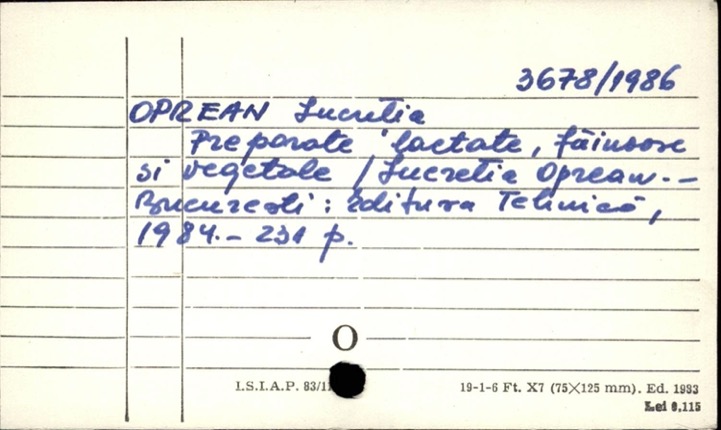 3678/1986
OPREAN Lucretia
Preparate lactate, făinoase
si vegetale / Lucretia Oprean. –
Bucuresti: Editura Tehnică,
1984. – 231 p.
O
I.S.I.A.P. 83/1
19-1-6 Ft. X7 (75×125 mm). Ed. 1983
Lei 8,115